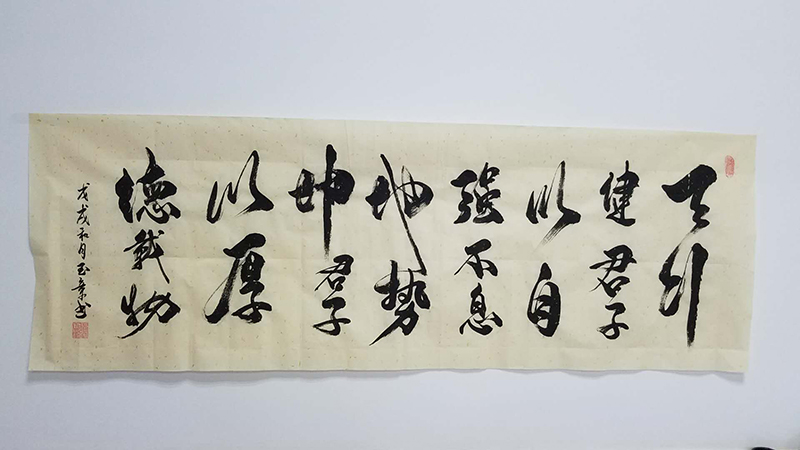 天行
健君子
以自
强不息
地势
坤君子
以厚
德载物
戊戌和月玉章书